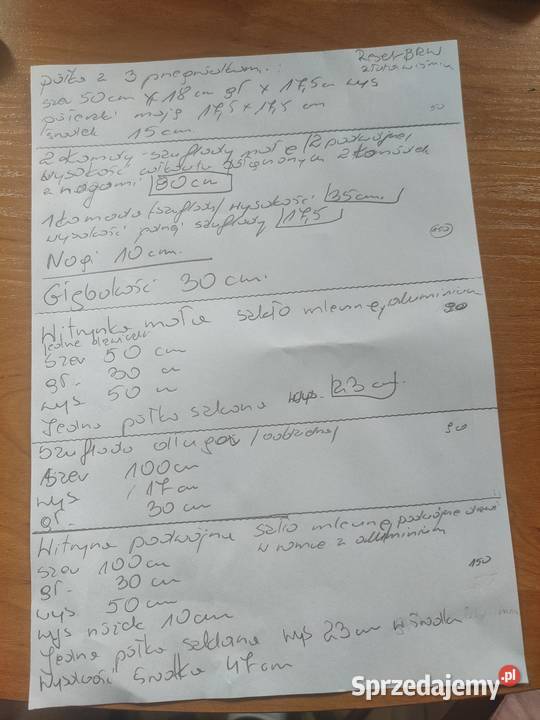 półka z 3 przegródkami. Reset BRW
złota wiśnia
szer 50 cm x 18 cm gł x 17,5 cm wys
mają 17,5 x 17,5 cm
środek 15 cm 50
2 komody - szuflady małe /2 podwójne/
wysokość 2 komódek
z nogami 80 cm
1 komoda /szuflady/ wysokość 35 cm
wysokość szuflady 17,5
Nogi 10 cm.
Głębokość 30 cm.
Witrynka mała szkło mleczne, aluminium
jedne drzwiczki 90
szer 50 cm
gł. 30 cm
wys 50 cm
jedna półka szklana wys. 23 cm.
szuflada długa
szer 100 cm 90
wys 17 cm
gł. 30 cm
Witryna podwójna szkło mleczne podwójne drzwi
w ramce z aluminium
szer 100 cm
gł. 30 cm 150
wys 50 cm
wys nóżek 10 cm
jedna półka szklana wys 23 cm w środku
wysokość środka 47 cm
Sprzedajemy.pl